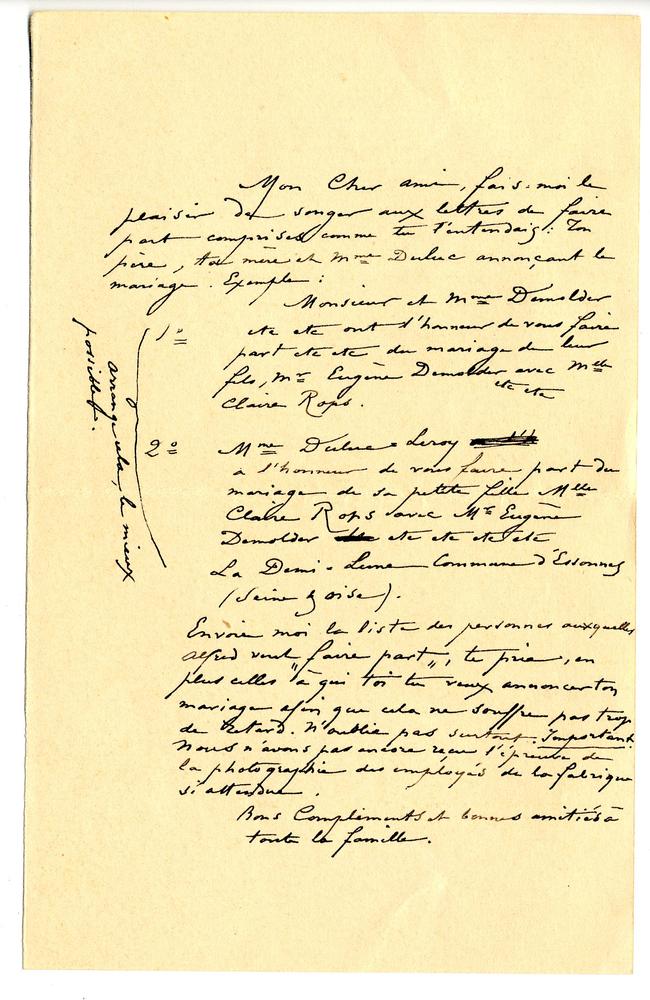 Mon Cher ami, fais-moi le
plaisir de songer aux lettres de faire
part comprises comme tu l'entendais : Ton
père, ta mère et Mme Duluc annonçant le
mariage. Exemple :
1º Monsieur et Mme Demolder
etc etc ont l'honneur de vous faire
part etc etc du mariage de leur
fils, Mr Eugène Demolder avec Melle
Claire Rops. etc etc
2º Mme Duluc-Leroy
a l'honneur de vous faire part du
mariage de sa petite fille Mlle
Claire Rops avec Mr Eugène
Demolder etc etc etc etc
La Demi-Lune Commune d'Essonnes
(Seine & Oise).
arrange cela, le mieux
possible.
Envoie moi la liste des personnes auxquelles
Alfred veut "faire part", te prie, en
plus celles à qui toi tu veux annoncer ton
mariage afin que cela ne souffre pas trop
de retard. N'oublie pas surtout. Important.
Nous n'avons pas encore reçu l'épreuve de
la photographie des employés de la fabrique
si attendue.
Bons Compliments et bonnes amitiés à
toute la famille.